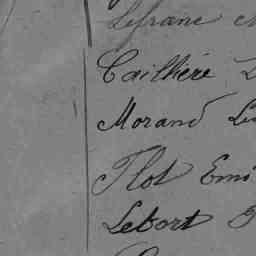 Lefranc
Cailhière
Morand
Flot Emi
Lebort